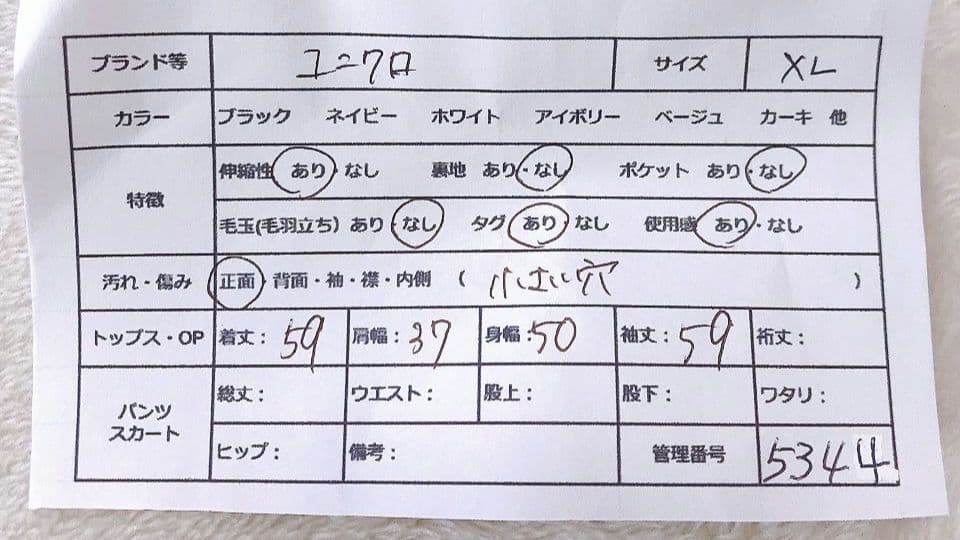 ブランド等 ユニクロ サイズ XL
カラー ブラック ネイビー ホワイト アイボリー ベージュ カーキ 他
特徴
伸縮性 あり・なし 裏地 あり・なし ポケット あり・なし
毛玉(毛羽立ち) あり・なし タグ あり・なし 使用感 あり・なし
汚れ・傷み 正面・背面・袖・襟・内側 ( 小さい穴 )
トップス・OP 着丈：59 肩幅：37 身幅：50 袖丈：59 裄丈：
パンツ
スカート
総丈： ウエスト： 股上： 股下： ワタリ：
ヒップ： 備考： 管理番号 5344